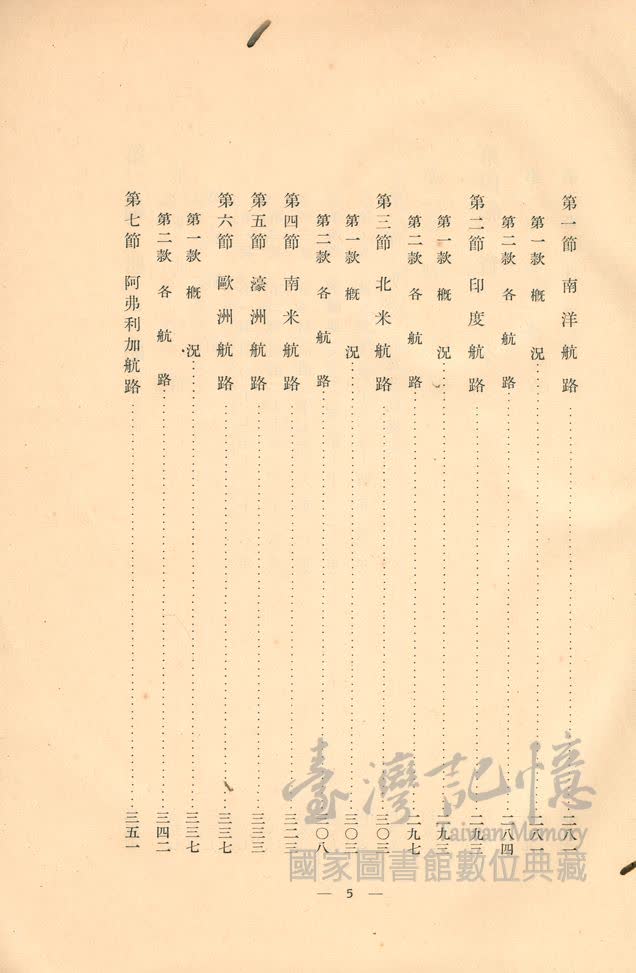 第一節 南洋航路……二八一
第一款 概況……二八一
第二款 各航路……二八四
第二節 印度航路……二九三
第一款 概況……二九三
第二款 各航路……二九七
第三節 北米航路……三〇三
第一款 概況……三〇三
第二款 各航路……三〇八
第四節 南米航路……三二三
第五節 濠洲航路……三三三
第六節 歐洲航路……三三七
第一款 概況……三三七
第二款 各航路……三四二
第七節 阿弗利加航路……三五一
臺灣記憶
Taiwan Memory
國家圖書館數位典藏
— 5 —